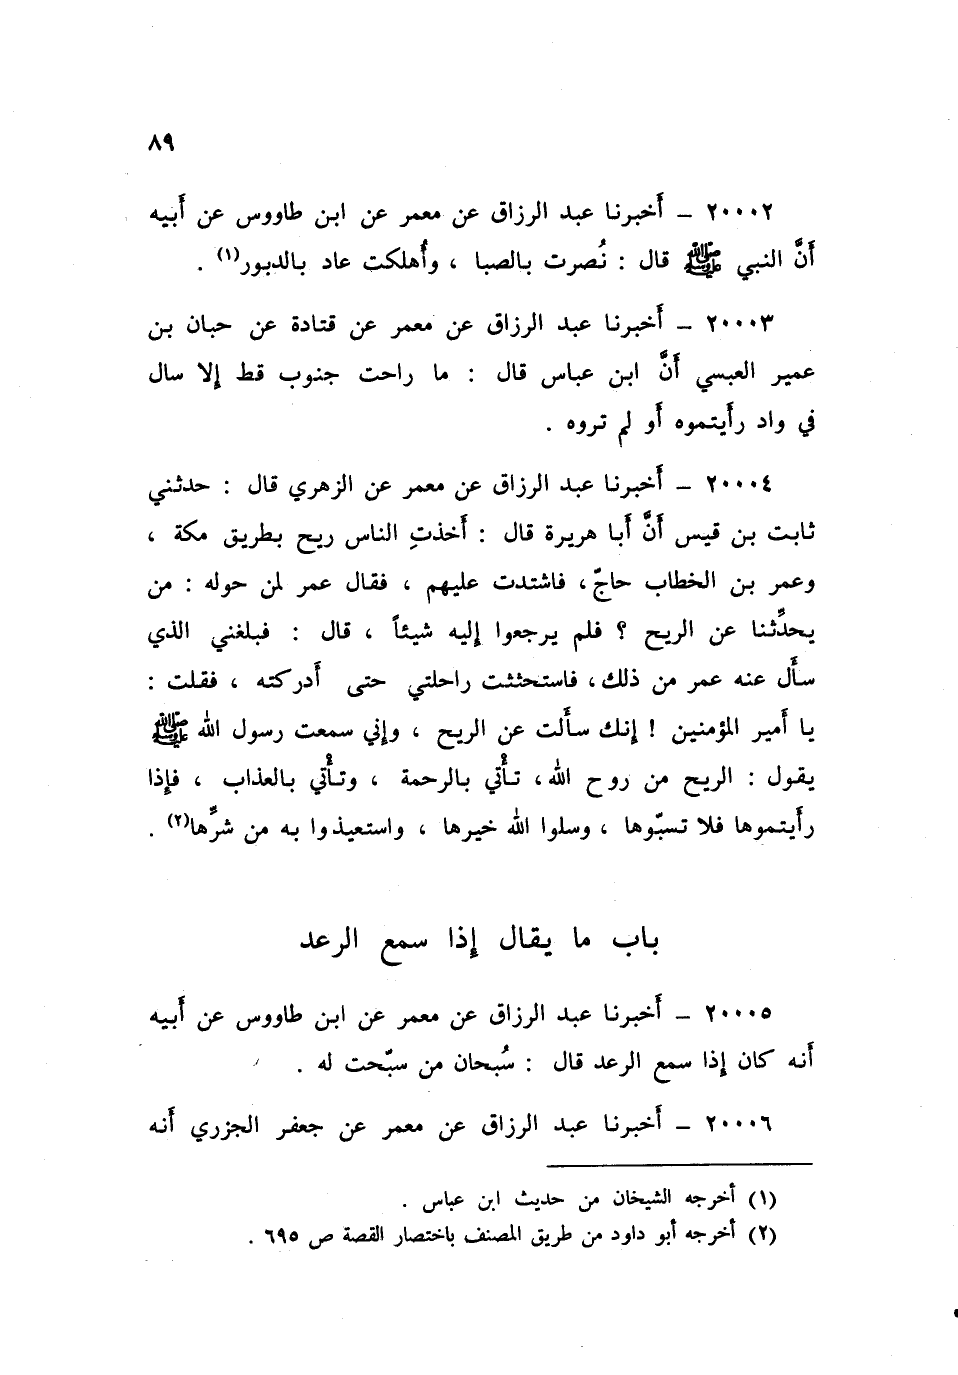 ٨٩
٢٠٠٠٢ ـ أَخبرنا عبد الرزاق عن معمر عن ابن طاووس عن أَبيه
أَنَّ النبي ﷺ قال : نُصرت بالصبا ، وأُهلكت عاد بالدبور(١) .
٢٠٠٠٣ ـ أَخبرنا عبد الرزاق عن معمر عن قتادة عن حبان بن
عمير العبسي أَنَّ ابن عباس قال : ما راحت جنوب قط إلا سال
في واد رأَيتموه أَو لم تروه .
٢٠٠٠٤ ـ أَخبرنا عبد الرزاق عن معمر عن الزهري قال : حدثني
ثابت بن قيس أَنَّ أَبا هريرة قال : أَخذتِ الناس ريح بطريق مكة ،
وعمر بن الخطاب حاجّ ، فاشتدت عليهم ، فقال عمر لمن حوله : من
يحدِّثنا عن الريح ؟ فلم يرجعوا إليه شيئاً ، قال : فبلغني الذي
سأَل عنه عمر من ذلك ، فاستحثثت راحلتي حتى أَدركته ، فقلت :
يا أَمير المؤمنين ! إنك سأَلت عن الريح ، وإني سمعت رسول الله ﷺ
يقول : الريح من روح الله ، تأْتي بالرحمة ، وتأْتي بالعذاب ، فإذا
رأَيتموها فلا تسبّوها ، وسلوا الله خيرها ، واستعيذوا به من شرِّها(٢) .
باب ما يقال إذا سمع الرعد
٢٠٠٠٥ ـ أَخبرنا عبد الرزاق عن معمر عن ابن طاووس عن أَبيه
أَنه كان إذا سمع الرعد قال : سُبحان من سبّحت له .
٢٠٠٠٦ ـ أَخبرنا عبد الرزاق عن معمر عن جعفر الجزري أَنه
(١) أخرجه الشيخان من حديث ابن عباس .
(٢) أخرجه أبو داود من طريق المصنف باختصار القصة ص ٦٩٥ .